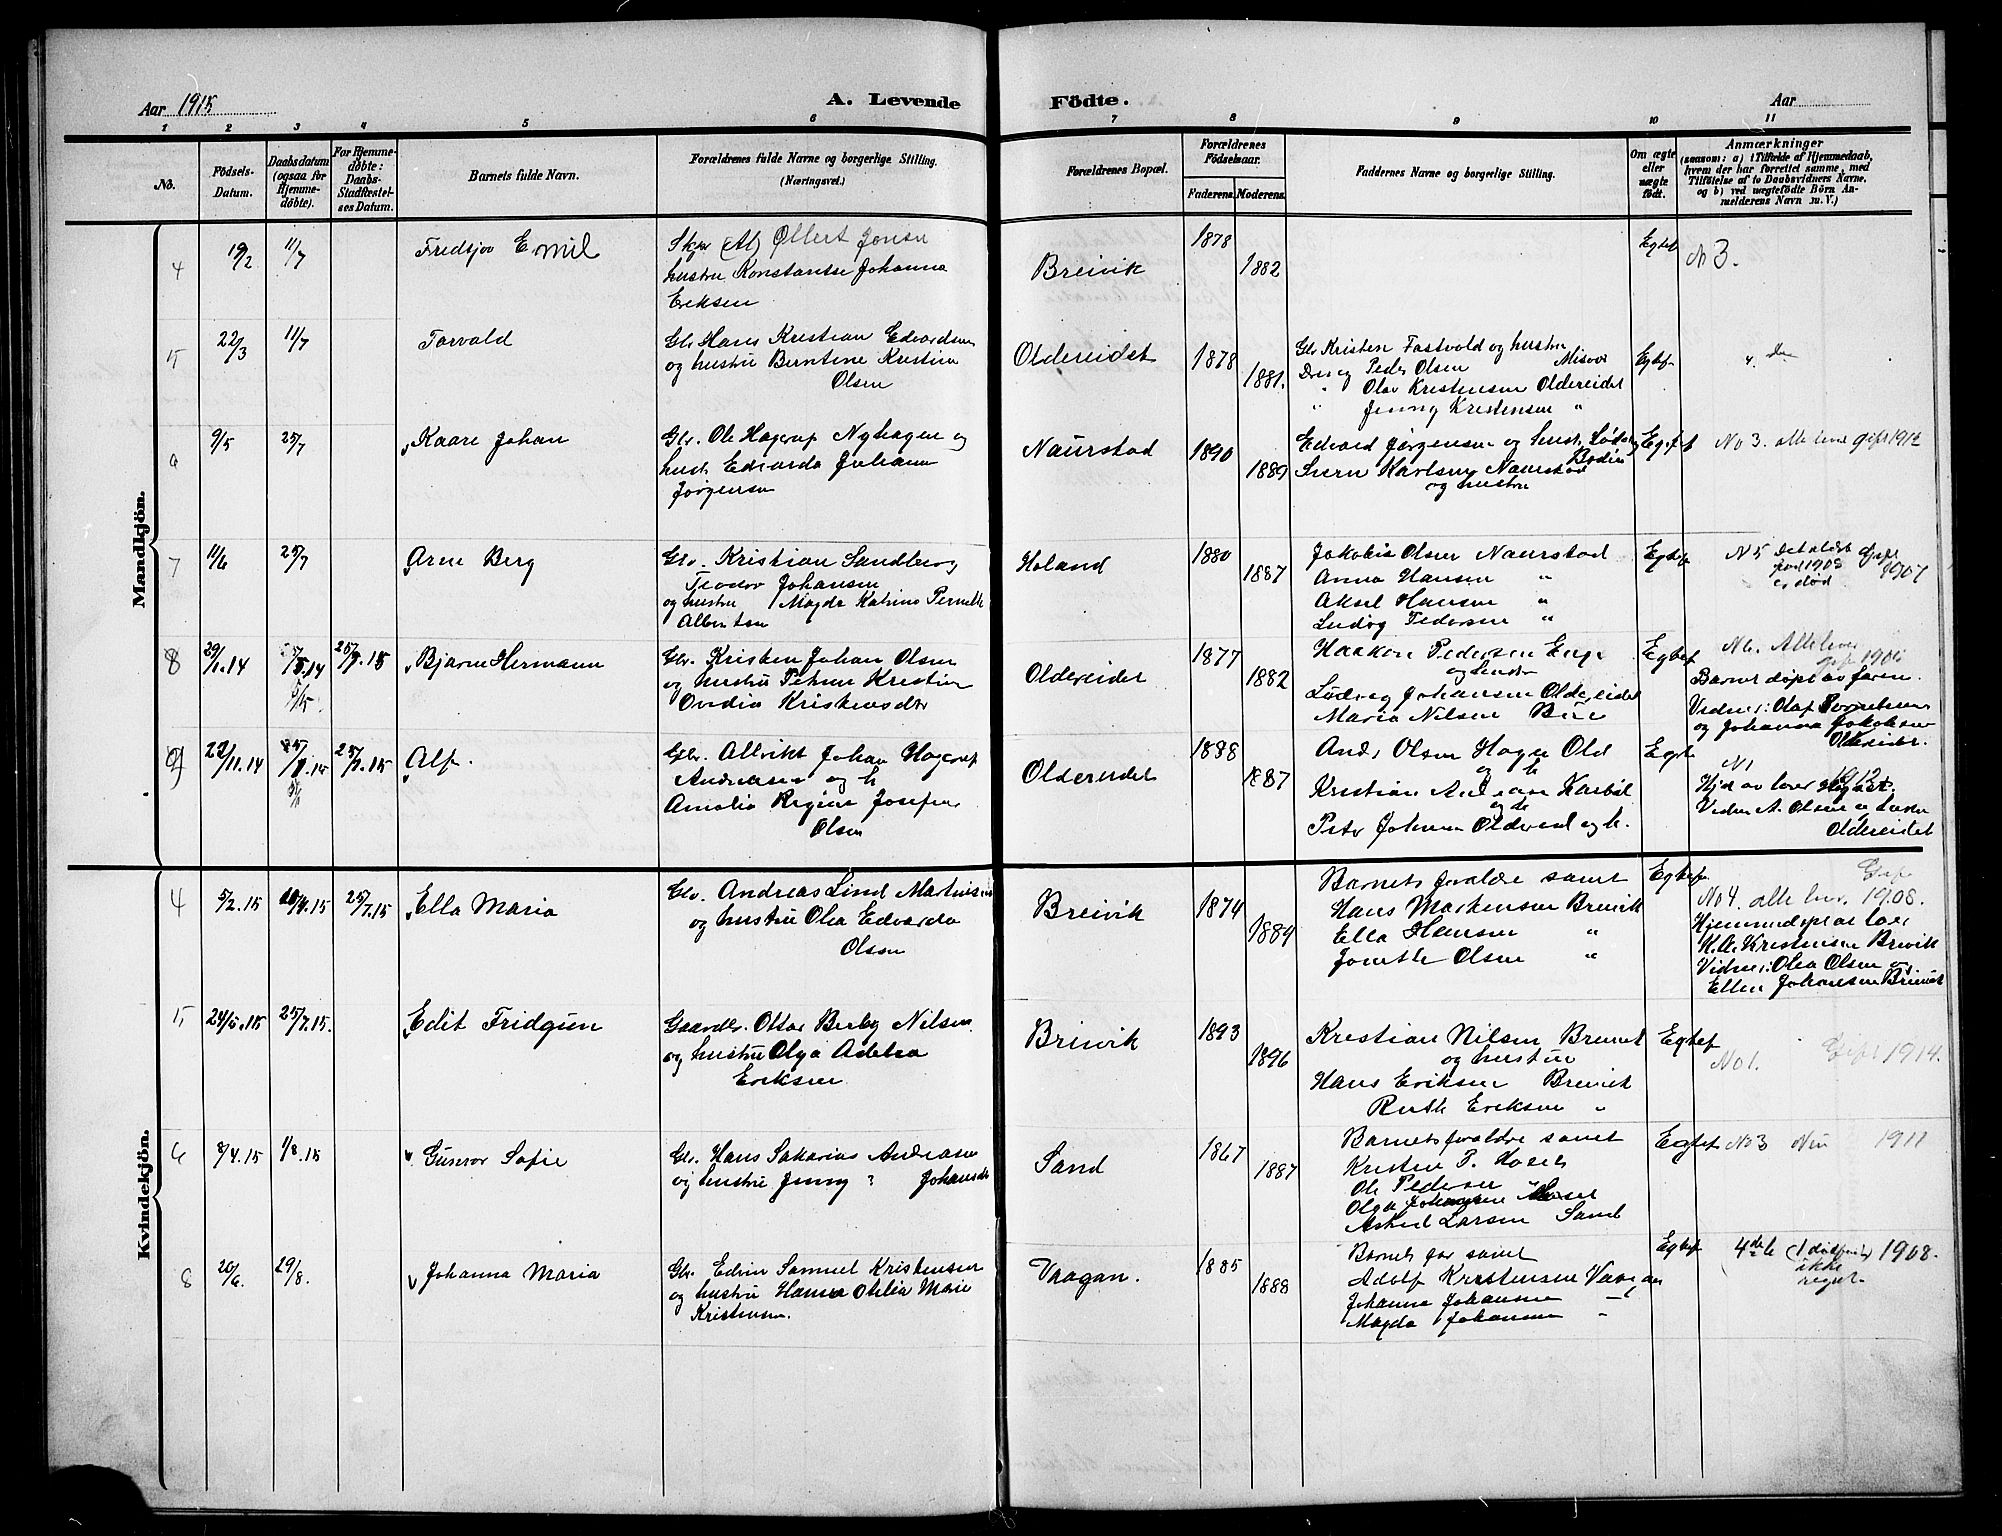 Aar 1915
A. Levende
Födte.
Aar
1 2 3 4 5 6 7 8 9 10 11
No.
Födsels-
Datum.
Daabsdatum
(ogsaa for
Hjemme-
døbte).
For Hjemme-
døbte:
Daabs-
Stadfæstel-
ses Datum.
Barnets fulde Navn.
Forældrenes fulde Navne og borgerlige Stilling.
(Næringsvei.)
Forældrenes Bopæl.
Forældrenes
Födselsaar.
Faderens. Moderens.
Faddernes Navne og borgerlige Stilling.
Om ægte
eller
uægte
født.
Anmærkninger
(saasom: a) i Tilfælde af Hjemmedaab,
hvem der har forrettet samme, med
Tilföielse af to Daabsvidners Navne,
og b) ved uægtefödte Börn An-
melderens Navn m. V.)
Mandkjön.
4 19/2 11/7 Fredsjov Emil
Øllert Jensen
hustru Konstantse Johanna
Eriksen
Breivik 1878 1882 Egtef No 3.
5 22/3 11/7 Torvald
Gbr Hans Kristian Edvardsen
og hustru Berntine Kristine
Olsen
Oldereidet 1878 1881.
Gbr Kristen Fastvold og hustru
Dreng Peder Olsen Misvær
" Olav Kristensen Oldereidet
" Jenny Kristensen "
Egtef 4. de
6 9/5 25/7 Kaare Johan
Gbr. Ole Hagerup Nyhagen og
hust. Edvarda Johanna
Jørgensen
Naurstad 1890 1889
Edvard Jørgensen og hust. Bodin
Karlsen Naurstad
og hustru
Egtef No 3. alle leve gift 1912
7 11/6 25/7 Arne Berg
Gbr. Kristian Sandberg
Teodor Johansen
og hustru Magda Katrina Pernille
Albertsen
Holand 1880 1887
Jakobia Olsen Naurstad
Anna Hansen "
Aksel Hansen "
Ludvig Pedersen "
Egtef N 5 Det aldst Gift
1907
er død
8 29/1.14 25/7.15 Bjarne Hermann
Gbr. Kristen Johan Olsen
og hustru Petrine Kristine
Ovidia Kristensdtr
Oldereidet 1877 1882
Haakon Pedersen Enge
og hustru
Ludvig Johansen Oldereidet
Maria Nilsen
Egtef N6. Alle lever
Barnet døpt av faren.
Vidner: Olaf
og Johanna Jakobsen
Oldereidet.
9 22/11.14 25/7.15 Alf.
Gbr. Johan Hagerup
Andreasen og h
Amalia Regine Josefine
Olsen
Oldereidet 1888 1887
And. Olsen Old
og h
Kristian Andreasen
og do
Peter Johansen Oldereid og h.
Egte N 1
1912
Vidner A. Olsen og hustru
Oldereidet
Kvindekjön.
4 5/2.15 25/7.15 Ella Maria
Gbr. Andreas Lind Martinsen
og hustru Olea Edvarda
Olsen
Breivik 1874 1884
Barnets forældre samt
Hans Martensen Breivik
Ella Hansen "
Jonette Olsen "
Egtef Gift
No 4. alle lever. 1908.
Hjemmedøpt av lærer
K.A. Kristensen Breivik
Vidner: Olea Olsen og
Ellen Johansen Breivik
5 24/5.15 25/7.15. Edit Fridgun
Gaardbr. Ottar Berby Nilsen
og hustru Olga Adelea
Eriksen
Breivik 1893 1896
Kristian Nilsen Breivik
og hustru
Hans Eriksen Breivik
Ruth Eriksen "
Egtef No 1. Gift 1914.
6 8/4.15 1/8.15 Gunvor Sofie
Gbr. Hans Sakarias Andreasen
og hustru Jenny ? Johansdtr
Sand 1867 1887
Barnets forældre samt
Kristen P.
Ole Pedersen
Olga Johansen
Astrid Larsen Sand
Egtef No 3 1911
8 20/6. 29/8. Johanna Maria
Gbr. Edvin Samuel Kristensen
og hustru Hanna Otilia Marie
Kristensen.
Vaagan. 1885 1888
Barnets far samt
Adolf Kristensen Vaagan
Johanna Johansen "
Magda Johansen "
Egtef 4de (1 dødfødt 1908.
ikke
regnet